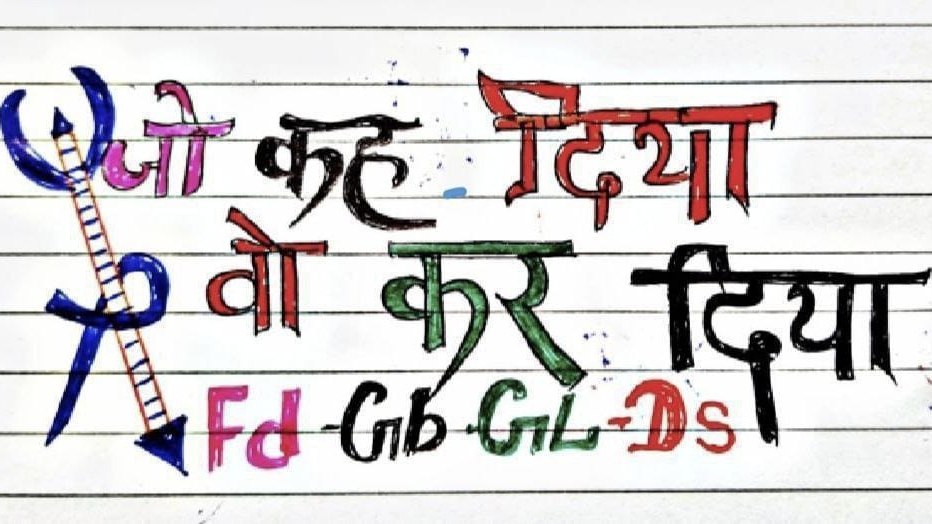 जो कह दिया
वो कर दिया
Fd -Gb -GL -Ds